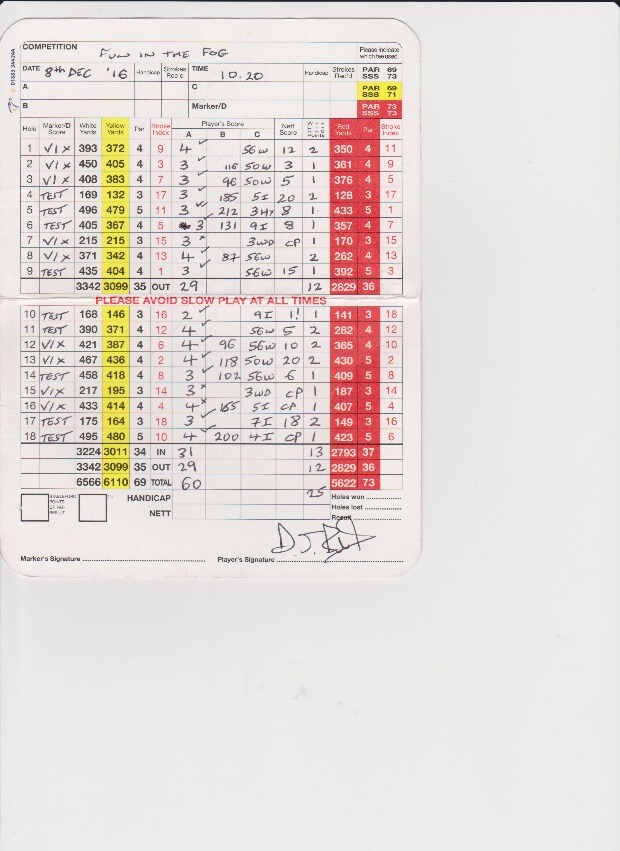 COMPETITION FUN IN THE FOG Please indicate which tee used.
DATE 8th DEC '16 Handicap Strokes Rec'd TIME 10.20 Handicap Strokes Rec'd PAR 69 SSS 73
A C PAR 69 SSS 71
B Marker/D PAR 73 SSS 73
Hole Marker/D Score White Yards Yellow Yards Par Stroke Index Player's Score A B C Nett Score Red Yards Par Stroke Index
1 VIX 393 372 4 9 4 ✓ 56W 12 2 350 4 11
2 VIX 450 405 4 3 3 ✓ 116 50W 3 1 361 4 9
3 VIX 408 383 4 7 3 ✓ 96 50W 5 1 376 4 5
4 TEST 169 132 3 17 3 ✓ 185 5I 20 2 128 3 17
5 TEST 496 479 5 11 3 ✓ 212 3HY 8 1 433 5 1
6 TEST 405 367 4 5 3 ✓ 131 9I 8 1 357 4 7
7 VIX 215 215 3 15 3 x 3WD CP 1 170 3 15
8 VIX 371 342 4 13 4 ✓ 87 56W 2 262 4 13
9 TEST 435 404 4 1 3 ✓ 56W 15 1 392 5 3
3342 3099 35 OUT 29 12 2829 36
PLEASE AVOID SLOW PLAY AT ALL TIMES
10 TEST 168 146 3 16 2 ✓ 9I 1! 1 141 3 18
11 TEST 390 371 4 12 4 ✓ 56W 5 2 282 4 12
12 VIX 421 387 4 6 4 ✓ 96 56W 10 2 365 4 10
13 VIX 467 436 4 2 4 ✓ 118 50W 20 2 430 5 2
14 TEST 458 418 4 8 3 ✓ 102 56W 6 1 409 5 8
15 VIX 217 195 3 14 3 x 3WD CP 1 187 3 14
16 VIX 433 414 4 4 4 x 165 5I CP 1 407 5 4
17 TEST 175 164 3 18 3 ✓ 7I 18 2 149 3 16
18 TEST 495 480 5 10 4 ✓ 200 4I CP 1 423 5 6
3224 3011 34 IN 31 13 2793 37
3342 3099 35 OUT 29 12 2829 36
6566 6110 69 TOTAL 60 5622 73
HANDICAP 25 Holes won
NETT Holes lost
Result
Marker's Signature Player's Signature